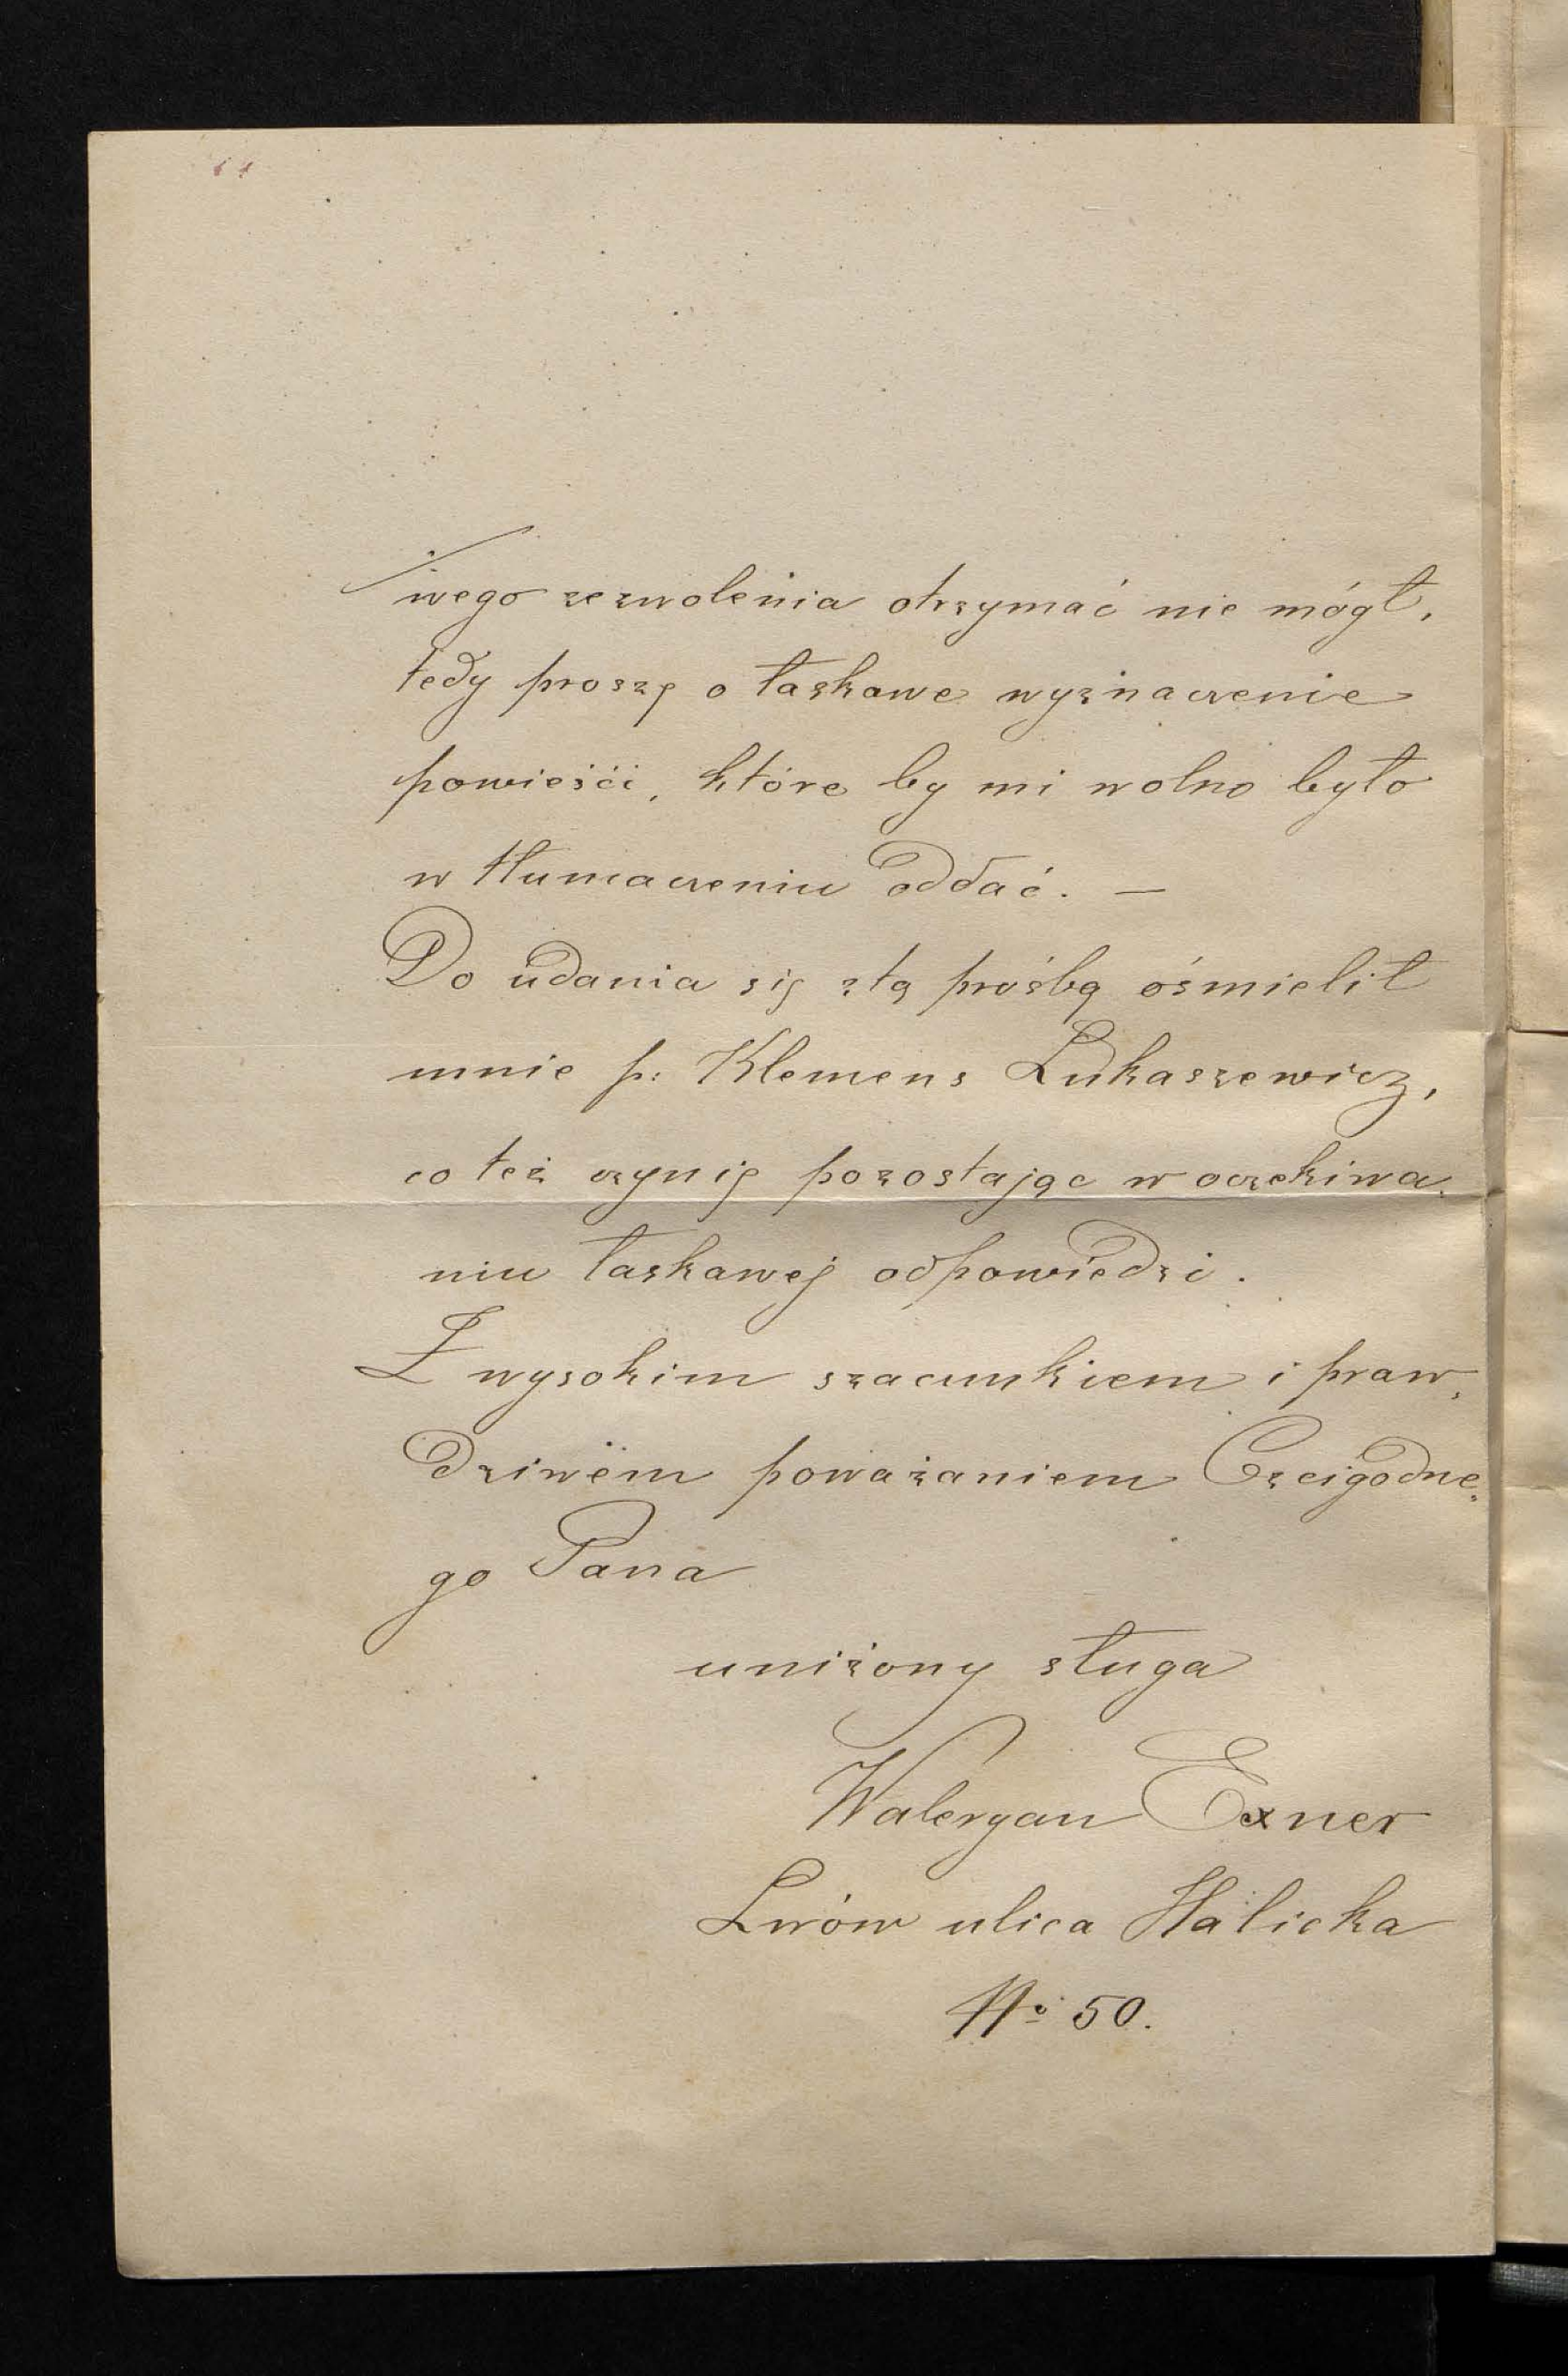 wego zezwolenia otrzymać nie mógł,
tedy proszę o łaskawe wyznaczenie
powieści, które by mi wolno było
w tłumaczeniu oddać. —
Do udania się z tą prośbą ośmielił
mnie p: Klemens Łukaszewicz,
co też czynię pozostając w oczekiwa„
niu łaskawej odpowiedzi.
Z wysokim szacunkiem i praw„
dziwem poważaniem Czcigodne„
go Pana
uniżony sługa
Waleryan Exner
Lwów ulica Halicka
No 50.